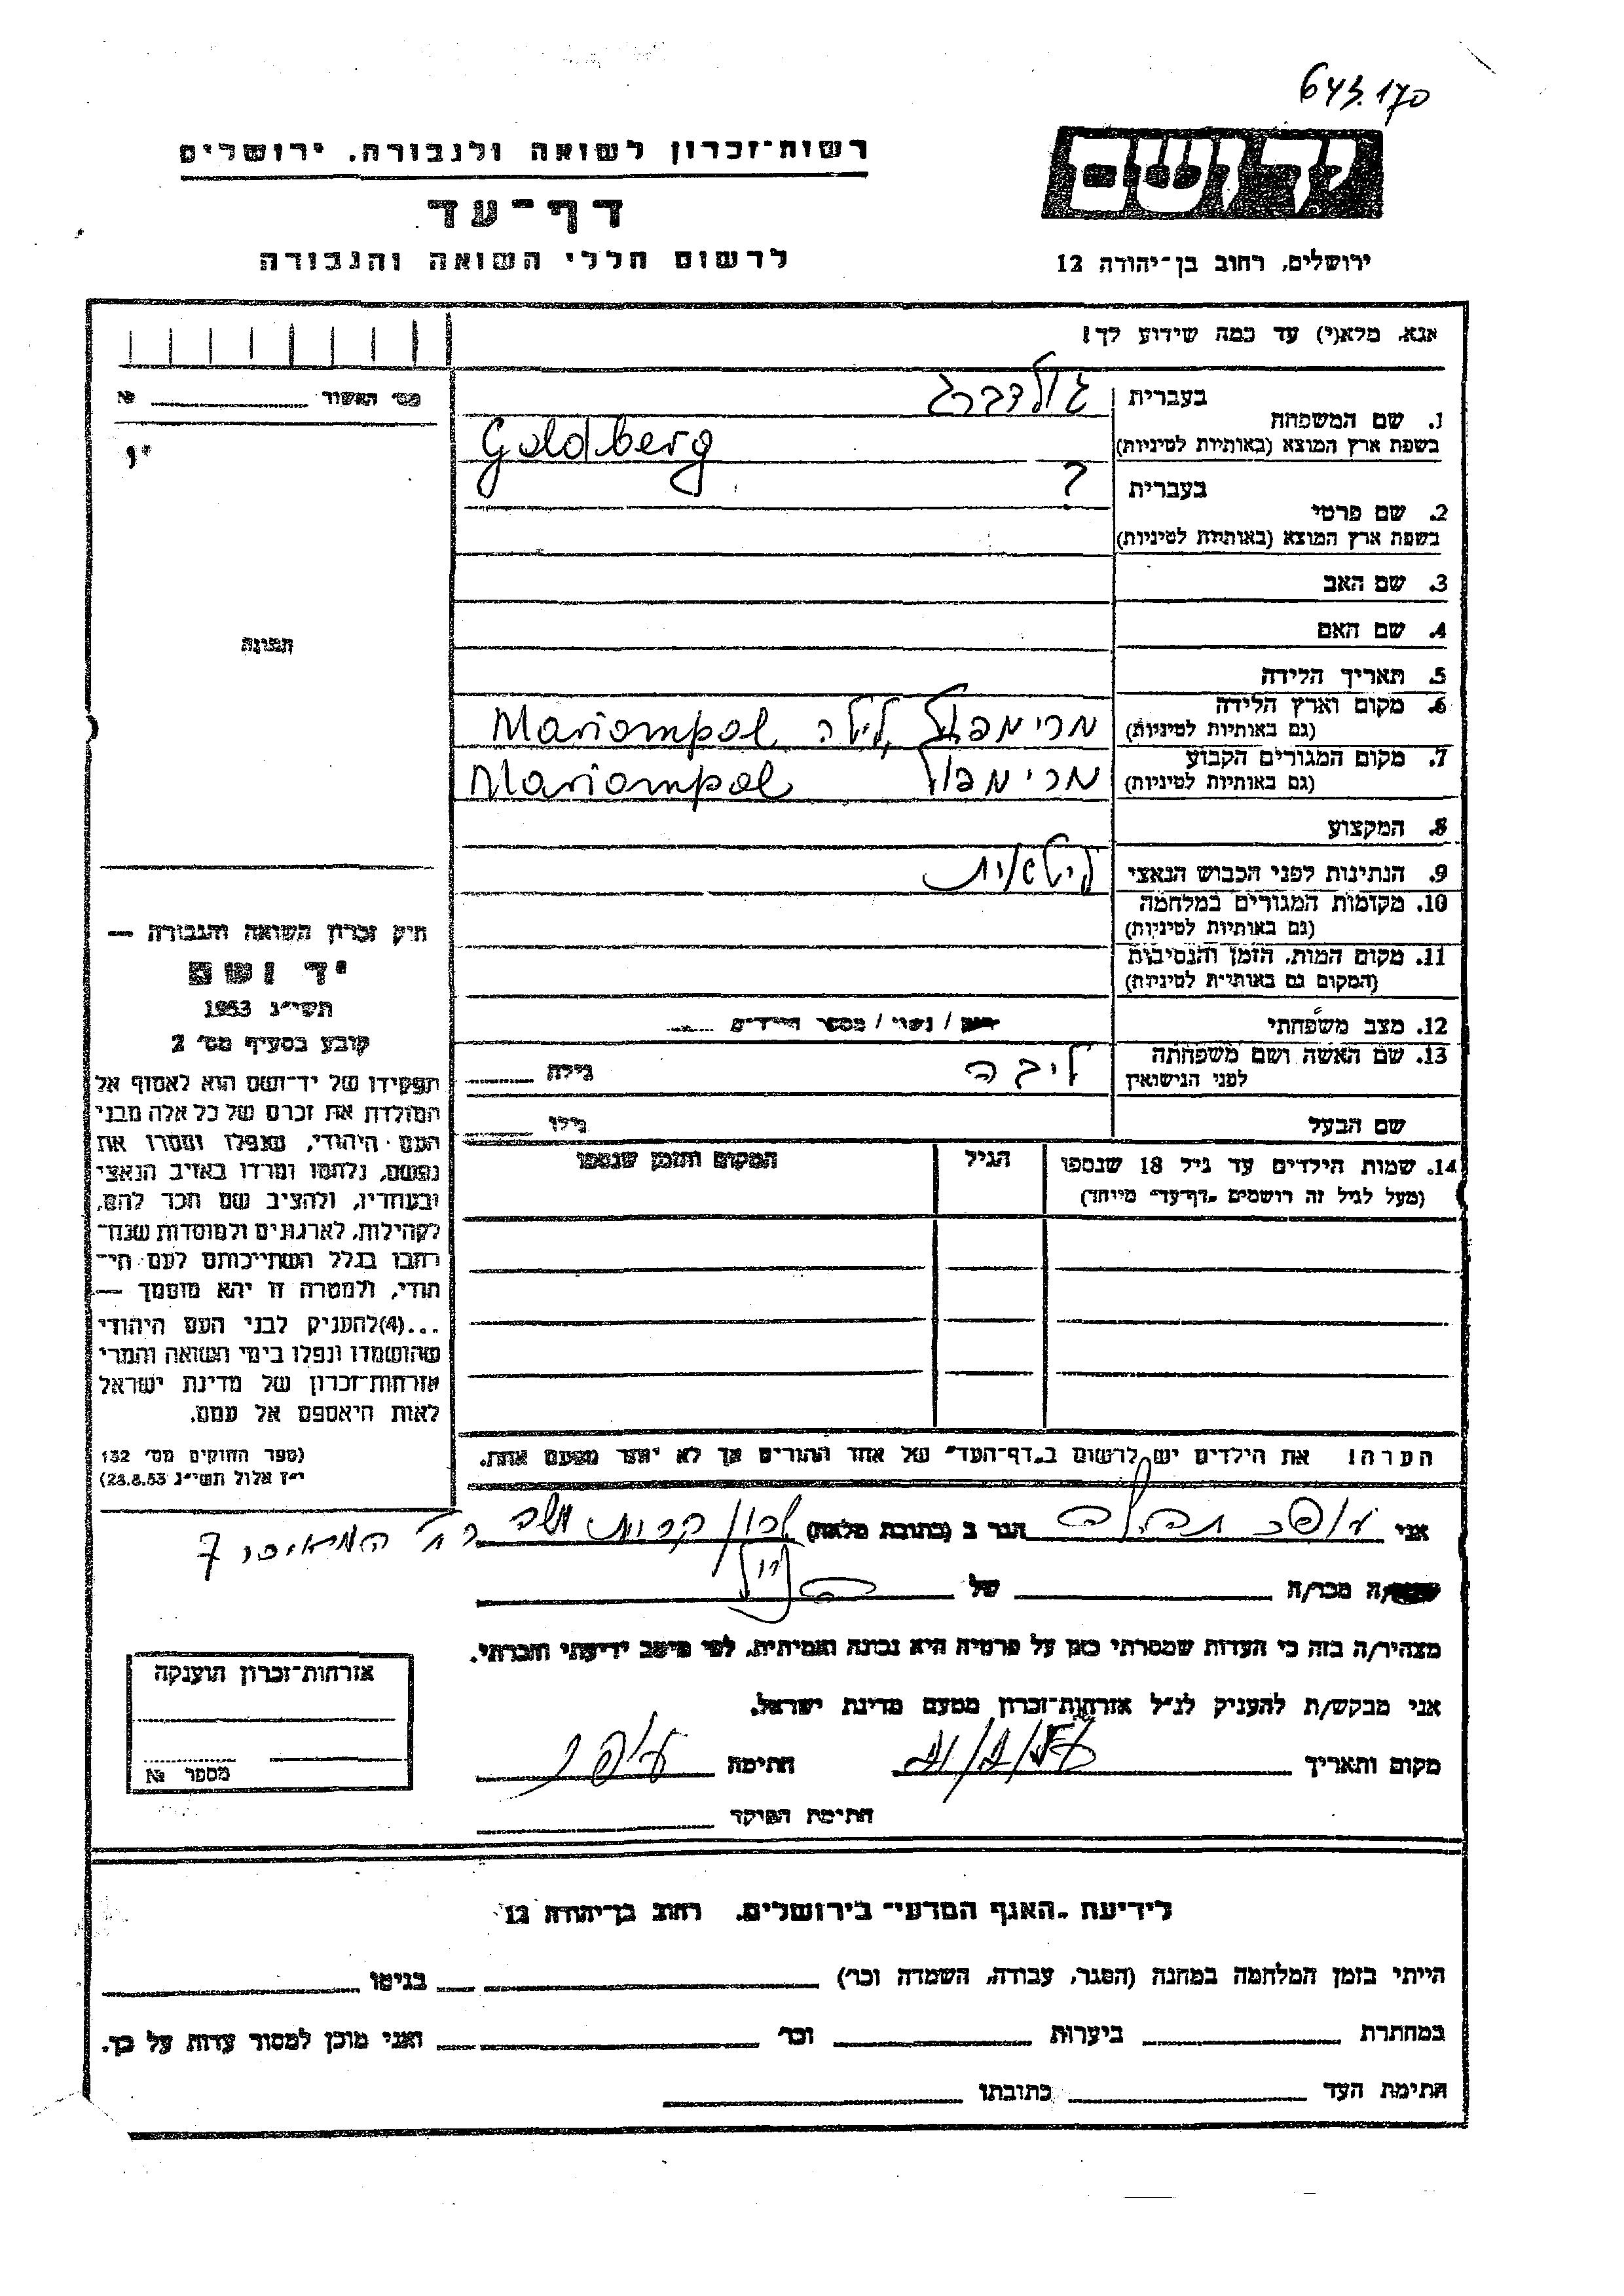 643.170
יד ושם
רשות־זכרון לשואה ולגבורה, ירושלים
דף־עד
לרשום חללי השואה והגבורה
ירושלים, רחוב בן־יהודה 12
אנא, מלא(י) עד כמה שידוע לך!
מס׳ האשור № 
1. שם המשפחה בעברית גולדברג
בשפת ארץ המוצא (באותיות לטיניות) Goldberg
2. שם פרטי בעברית ?
בשפת ארץ המוצא (באותיות לטיניות)
3. שם האב
4. שם האם
5. תאריך הלידה
6. מקום וארץ הלידה
(גם באותיות לטיניות) מרימפול ליטה Mariompol
7. מקום המגורים הקבוע
(גם באותיות לטיניות) מרימפול Mariompol
8. המקצוע
9. הנתינות לפני הכבוש הנאצי ליטאית
10. מקומות המגורים במלחמה
(גם באותיות לטיניות)
11. מקום המות, הזמן והנסיבות
(המקום גם באותיות לטיניות)
12. מצב משפחתי רווק / נשוי / מספר הילדים
13. שם האשה ושם משפחתה
לפני הנישואין ליבה גילה
שם הבעל גילו
14. שמות הילדים עד גיל 18 שנספו
(מעל לגיל זה רושמים „דף־עד״ מיוחד)
הגיל
המקום והזמן שנספו
תמונה
חיק זכרון השואה והגבורה —
יד ושם
תשי״ג 1953
קובע בסעיף מס׳ 2
תפקידו של יד־ושם הוא לאסוף אל
המולדת את זכרם של כל אלה מבני
העם היהודי, שנפלו ומסרו את
נפשם, נלחמו ומרדו באויב הנאצי
ובעוזריו, ולהציב שם וזכר להם,
לקהילות, לארגונים ולמוסדות שנח־
רבו בגלל השתייכותם לעם הי־
הודי, ולמטרה זו יהא מוסמך —
...(4)להעניק לבני העם היהודי
שהושמדו ונפלו בימי השואה והמרי
אזרחות־זכרון של מדינת ישראל
לאות היאספם אל עמם.
(ספר החוקים מס׳ 132
י״ז אלול תשי״ג 28.8.53)
הערה: את הילדים יש לרשום ב„דף־העד״ של אחד ההורים אך לא יותר מפעם אחת.
אני הגר ב (כתובת מלאה) 7
ה מכר/ה של
מצהיר/ה בזה כי העדות שמסרתי כאן על פרטיה היא נכונה ואמיתית, לפי מיטב ידיעתי והכרתי.
אני מבקש/ת להעניק לנ״ל אזרחות־זכרון מטעם מדינת ישראל.
מקום ותאריך חתימה
חתימת הפוקד
אזרחות־זכרון הוענקה
מספר №
לידיעת „האגף המדעי״ בירושלים. רחוב בן־יהודה 12
הייתי בזמן המלחמה במחנה (הסגר, עבודה, השמדה וכו׳) בגיטו
במחתרת ביערות וכו׳ ואני מוכן למסור עדות על כך.
חתימת העד כתובתו